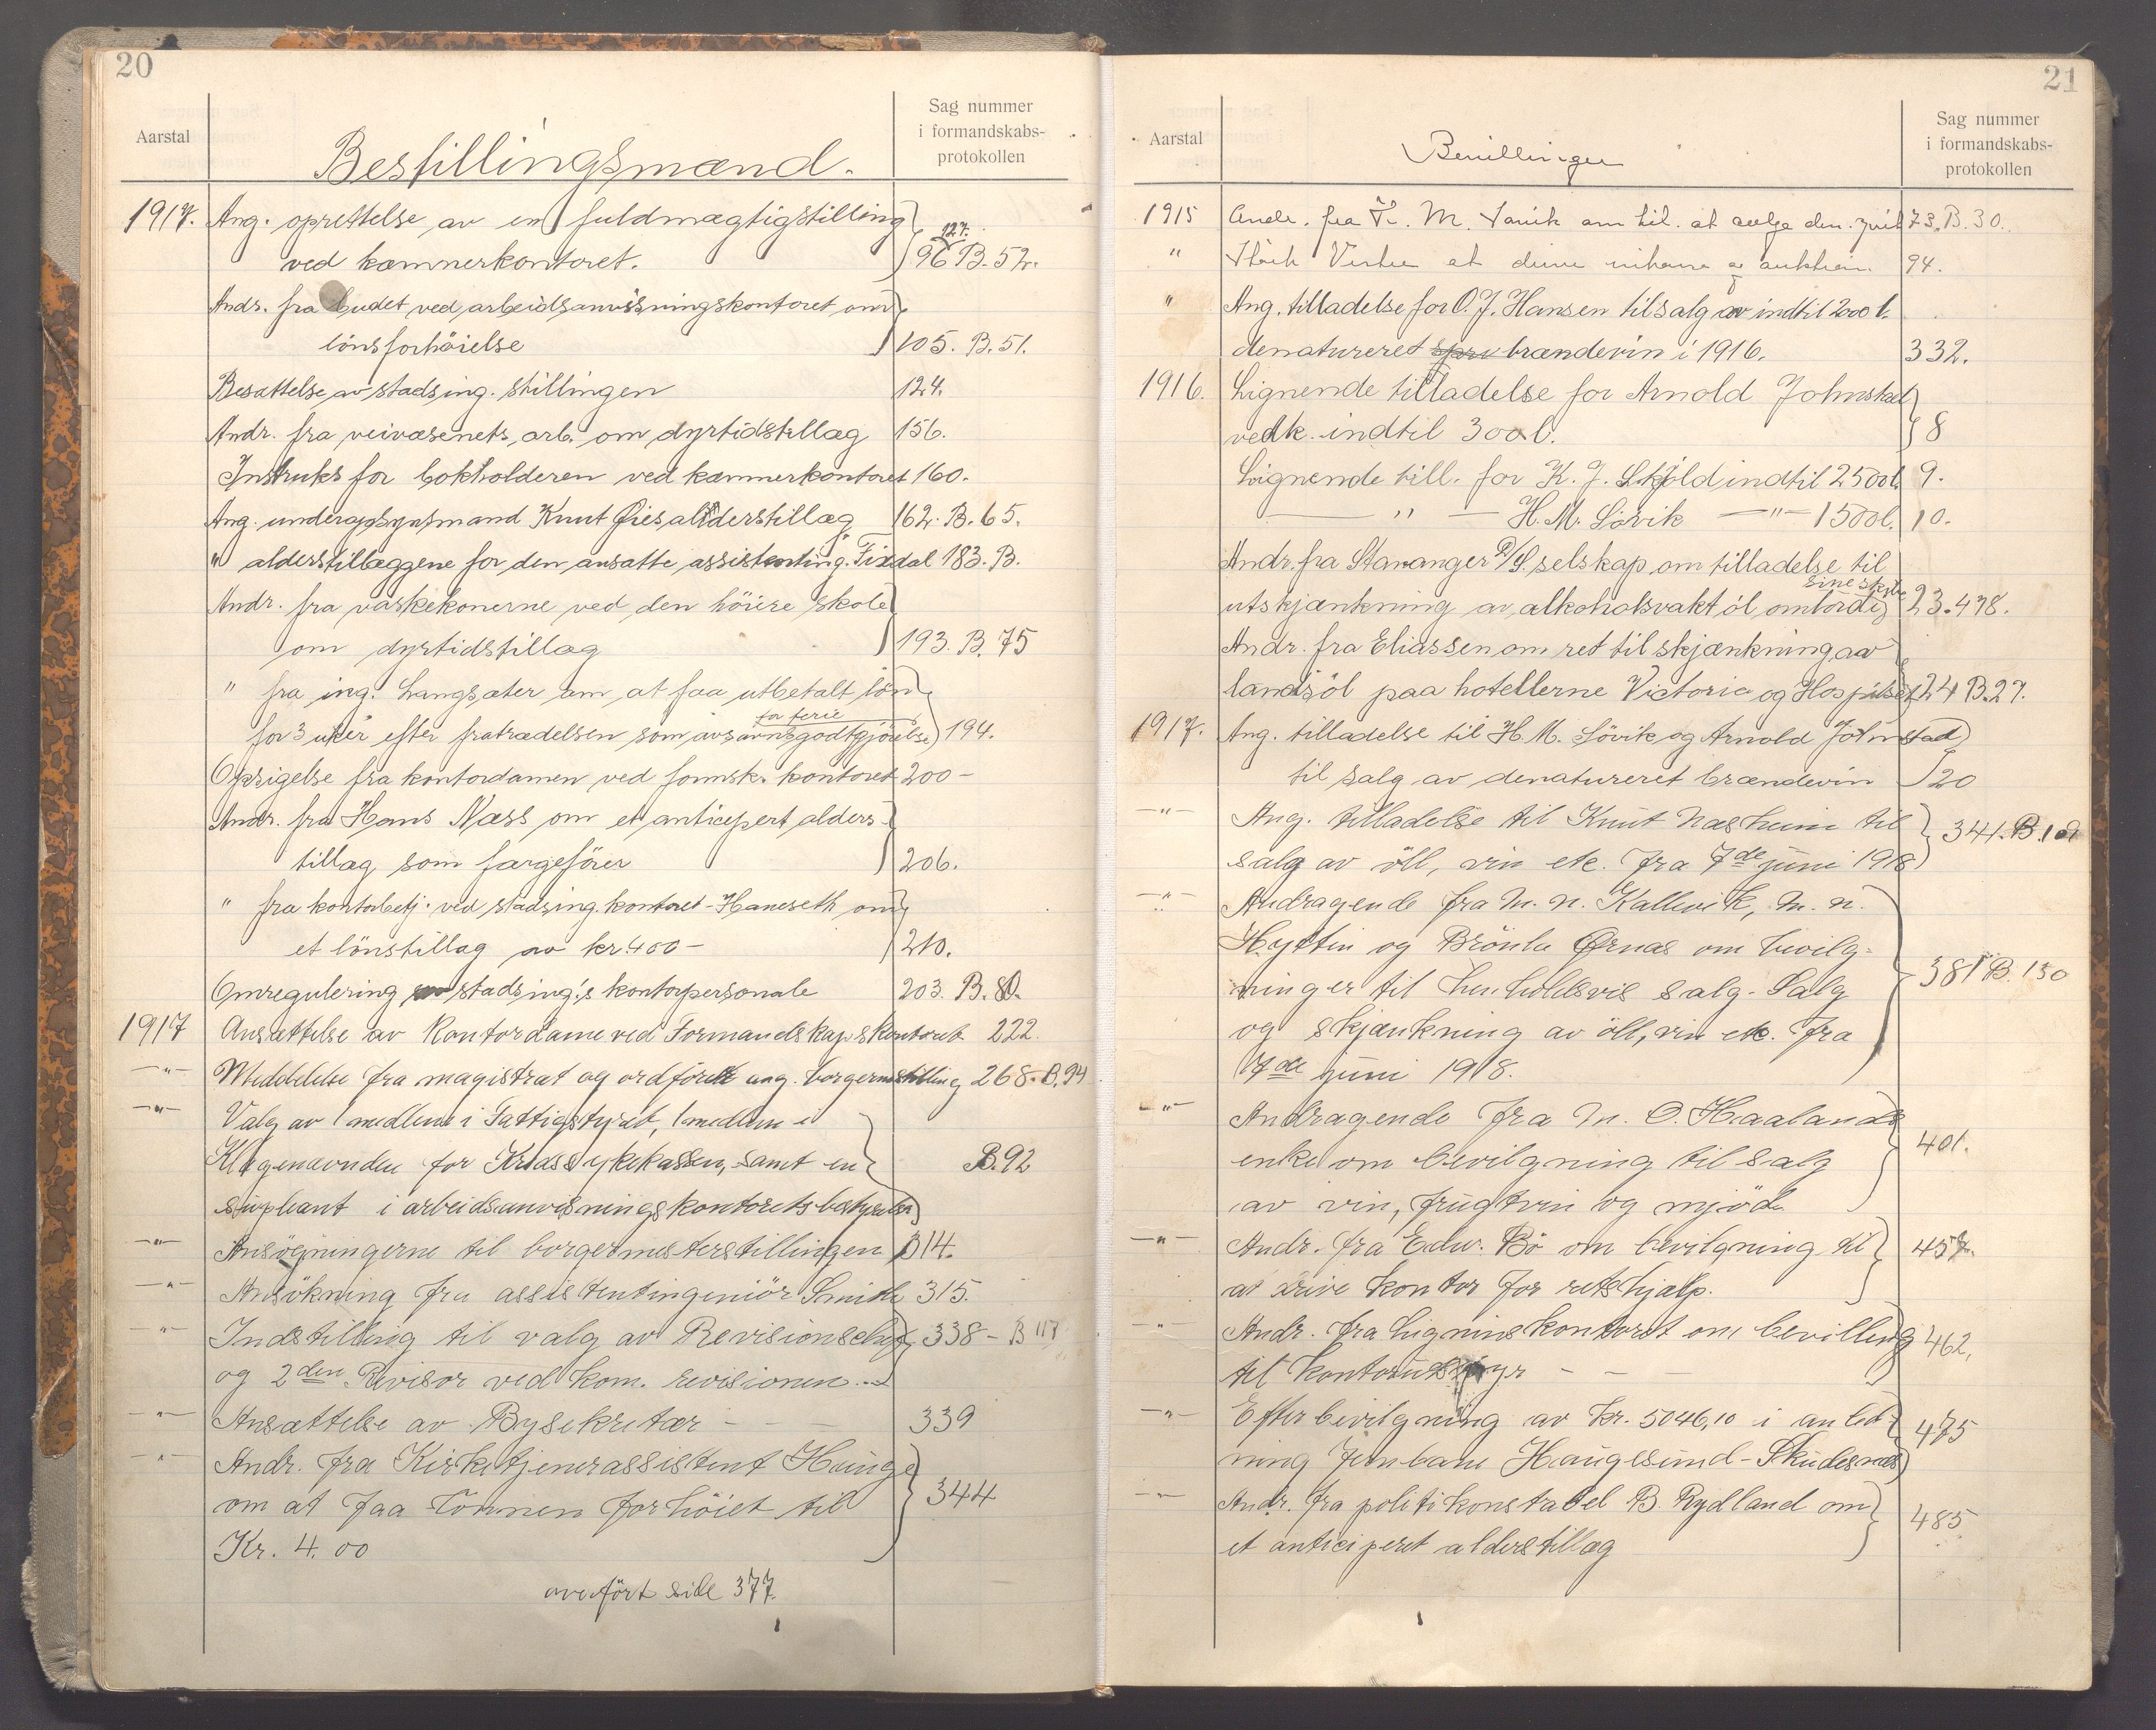 20
Aarstal
Bestillingsmænd.
Sag nummer
i formandskabs-
protokollen
1917. Ang. oprettelse av en fuldmægtigstilling
ved kæmnerkontoret. 127. 96 B. 52.
Andr. fra budet ved arbeidsanvisningskontoret om
lönsforhöielse 105. B. 51.
Besættelse av stadsing. stillingen 124.
Andr. fra veivæsenets arb. om dyrtidstillæg 156.
Instruks for bokholderen ved kæmnerkontoret 160.
Ang. underopsynsmand Knut Øies alderstillæg 162. B. 65.
" alderstillæggene for den ansatte assistenting. Fixdal 183. B.
Andr. fra vaskekonerne ved den höiere skole
om dyrtidstillæg 193. B. 75
" fra ing. Langsæter om at faa utbetalt lön
for ferie
for 3 uker efter fratrædelsen som godtgjörelse 194.
Opsigelse fra kontordamen ved formsk. kontoret 200 -
Andr. fra Hans Næss om et anticipert alders-
tillæg som færgeförer 206.
" fra kontorbetj. ved stadsing. kontoret - Haneseth om
et lönstillæg av kr. 400 - 210.
Omregulering av stadsing.'s kontorpersonale 203. B. 80.
1917 Ansættelse av Kontordame ved Formandskapskontoret 222.
-"- Meddelelse fra magistrat og ordförer ang. borgermstilling 268. B. 94
-"- Valg av 1 medlem i Fattigstyret, 1 medlem i
Klagenævnden for Kredssykekassen, samt en B. 92
supleant i arbeidsanvisningskontorets bestyrelse
-"- Ansögningerne til borgermesterstillingen 314.
-"- Ansökning fra assistentingeniör Smith 315.
-"- Indstilling til valg av Revisionschef 338 - B 117
og 2den Revisor ved kom. revisionen
-"- Ansættelse av Bysekretær - - - 339
-"- Andr. fra Kirketjenerassistent Hauge
om at faa lönnen forhöiet til 344
Kr. 4.00
overfört side 377.
21
Aarstal
Bevillinger
Sag nummer
i formandskabs-
protokollen
1915 Andr. fra M. om til. at sælge 73. B. 30.
" at drive og auktion. 94.
" Ang. tilladelse for O. J. Hansen til salg av indtil 2000 l.
denatureret brændevin i 1916. 332.
1916. Lignende tilladelse for Arnold Johnstad
vedk. indtil 300 l. 8
Lignende till. for K. J. Skjöld indtil 2500 l. 9.
— " — H. M. Lövik — " — 1500 l. 10.
Andr. fra Stavanger D/S. selskap om tilladelse til
sine skibe
utskjænkning av alkoholsvakt öl ombord i 23. 478.
Andr. fra Eliassen om ret til skjænkning av
landsöl paa hotellerne Victoria og Hospitset 24 B. 27.
1917. Ang. tilladelse til H. M. Lövik og Arnold Johnstad
til salg av denatureret brændevin 20
-"- Ang. tilladelse til Knut Næsheim til
salg av öll, vin etc. fra 7de juni 1918 341. B. 109
-"- Andragende fra M. N. Kallevik, M. N.
Hyttin og Ørnæs om bevilg-
ninger til henholdsvis salg - Salg 381 B. 130
og skjænkning av öll, vin etc. fra
7de juni 1918.
-"- Andragende fra M. O. Haalands
enke om bevilgning til salg 401.
av vin, frugtvin og mjöd
-"- Andr. fra Edw. Bö om bevilgning til 457.
at drive kontor for retshjælp.
-"- Andr. fra Ligninskontoret om bevilling 462.
til kontorutstyr - - -
-"- Efterbevilgning av kr. 5046,10 i anled- 475
ning Jernbane Haugesund - Skudesnæs
-"- Andr. fra politikonstabel B. Rydland om 485
et anticiperet alderstillæg